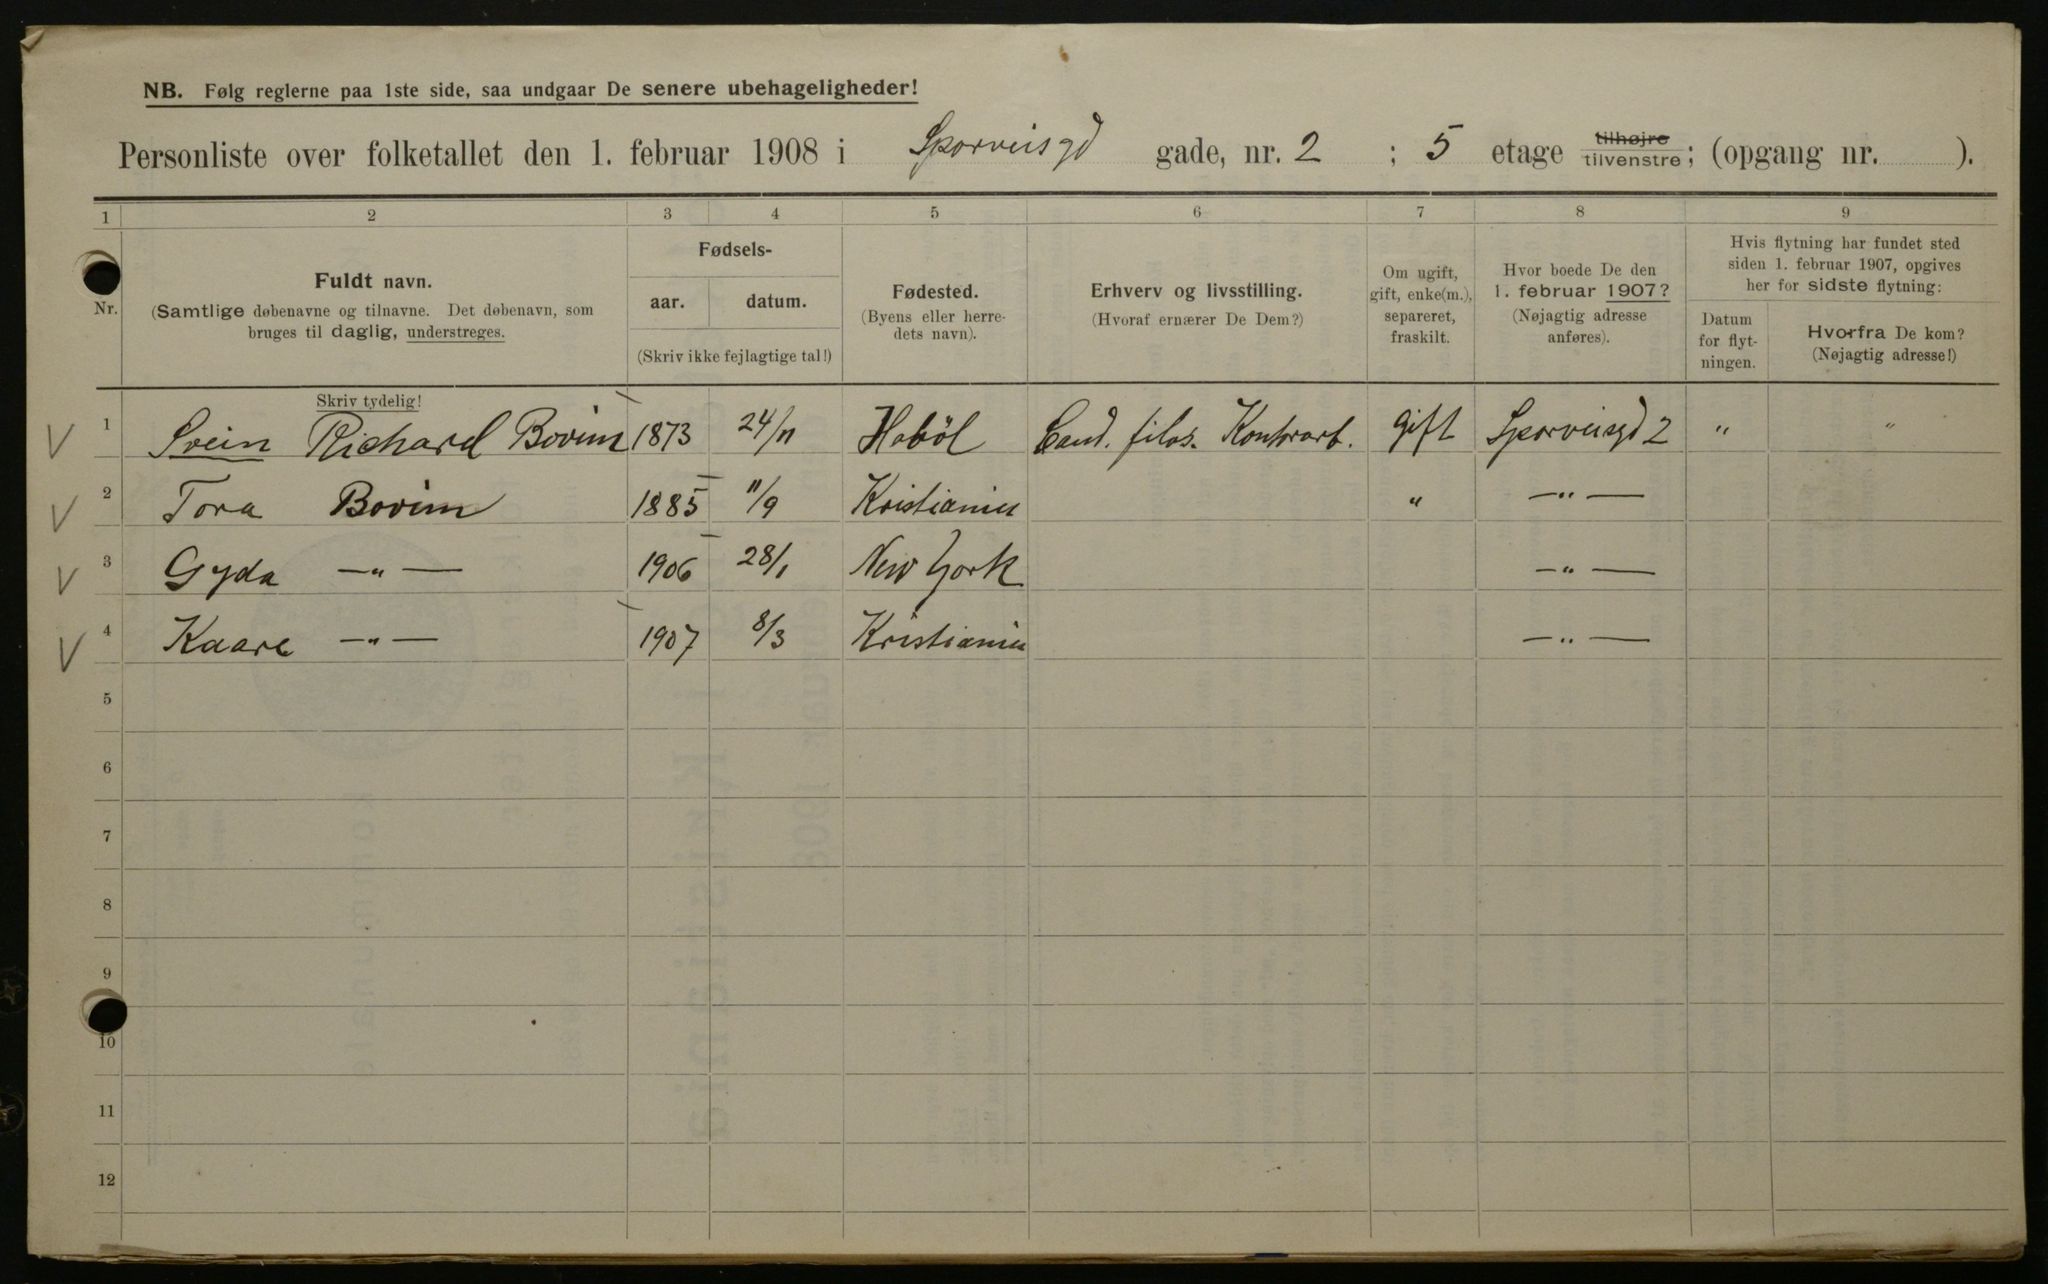 NB. Følg reglerne paa 1ste side, saa undgaar De senere ubehageligheder!
Personliste over folketallet den 1. februar 1908 i Sporveisgd gade, nr. 2 ; 5 etage tilhøjre tilvenstre; (opgang nr. ).
1 2 3 4 5 6 7 8 9
Nr.
Fuldt navn.
(Samtlige døbenavne og tilnavne. Det døbenavn, som
bruges til daglig, understreges.
Skriv tydelig!
Fødsels-
aar. datum.
(Skriv ikke fejlagtige tal!)
Fødested.
(Byens eller herre-
dets navn).
Erhverv og livsstilling.
(Hvoraf ernærer De Dem?)
Om ugift,
gift, enke(m.),
separeret,
fraskilt.
Hvor boede De den
1. februar 1907?
(Nøjagtig adresse
anføres).
Hvis flytning har fundet sted
siden 1. februar 1907, opgives
her for sidste flytning:
Datum
for flyt-
ningen.
Hvorfra De kom?
(Nøjagtig adresse!)
V 1 Svein Richard Bovim 1873 24/11 Haböl Cand. filos. Kontorarb. gift Sporveisgd 2 " "
V 2 Tora Bovim 1885 11/9 Kristiania " —"—
V 3 Gyda —"— 1906 28/1 New York —"—
V 4 Kaare —"— 1907 8/3 Kristiania —"—
5
6
7
8
9
10
11
12